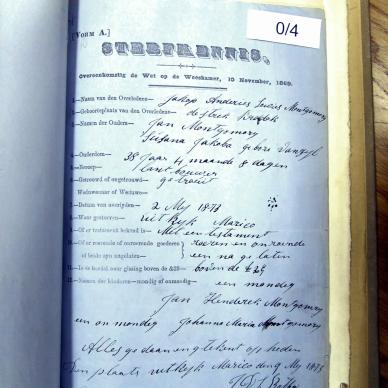 0/4
[VORM A.]
STERFKENNIS.
Overeenkomstig de Wet op de Weeskamer, 10 November, 1869.
1.—Naam van den Overledene— Jakop Anderies Montgomery
2.—Geboorteplaats van den Overledene— destrek
3.—Namen der Ouders— Jan Montgomery
Susana Jakoba gebore
4.—Ouderdom— 38 Jaar 4 maande 8 dagen
5.—Beroep— lantbouwer
6.—Getrouwd of ongetrouwd— getrouwt
Weduwenaar of Weduwe—
7.—Datum van overlijden— 2 Mij 1873
8.—Waar gestorven— uitkijk Marico
9.—Of er testament bekend is— Met een testament
10.—Of er roerende of onroerende goederen roeren en onroerende
of beide zijn nagelaten— een na ge laten
11.—Is de boedel naar gissing boven de £25— boven de £25
12.—Namen der kinderen—mondig of onmondig— een mondig
Jan Henderek Montgomery
een on mondig Johanna Maria Montgomery
Alles gedaan en getekent op heden
Den plaats uitkijk Marico den 9 Mij 1873